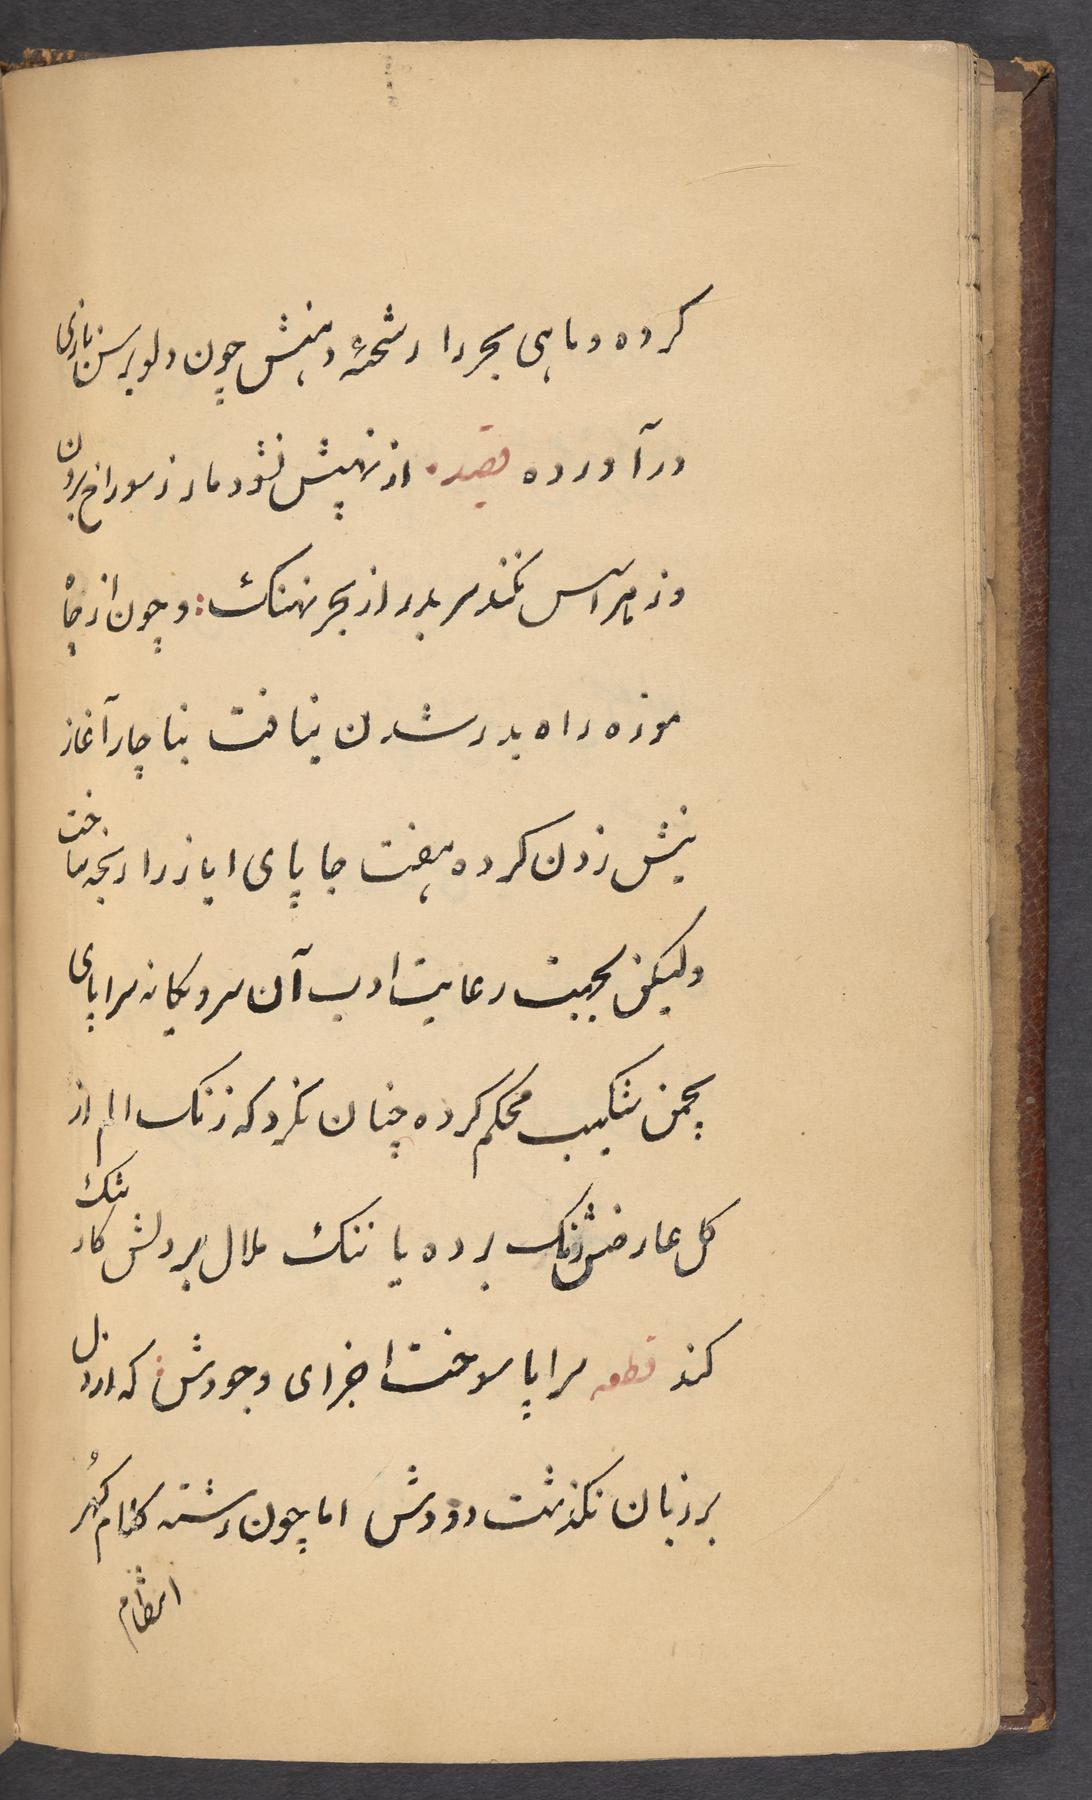 کرده و ماهی بحر را رشحهٔ دهنش چون دلو برسن بازی
در آورده قصیده از نهیبش نشود مار ز سوراخ برون
وز هراسس نکند سر بدر از بحر نهنک : و چون از چاه
موزه راه بدر شدن نیافت بناچار آغاز
نیش زدن کرده هفت جا پای ایاز را رنجه ساخت
ولیکن بجهت رعایت ادب آن سرو یکانه سراپای
بچمن شکیب محکم کرده چنان نکرد که رنک الم از
کل عارضش رنک برده یا ننک ملال بر دلش کار تنک
کند قطعه سراپا سوخت اجزای وجودش : که از دل
بر زبان نکذشت دودش اما چون رشته کلام کهر
انتظام